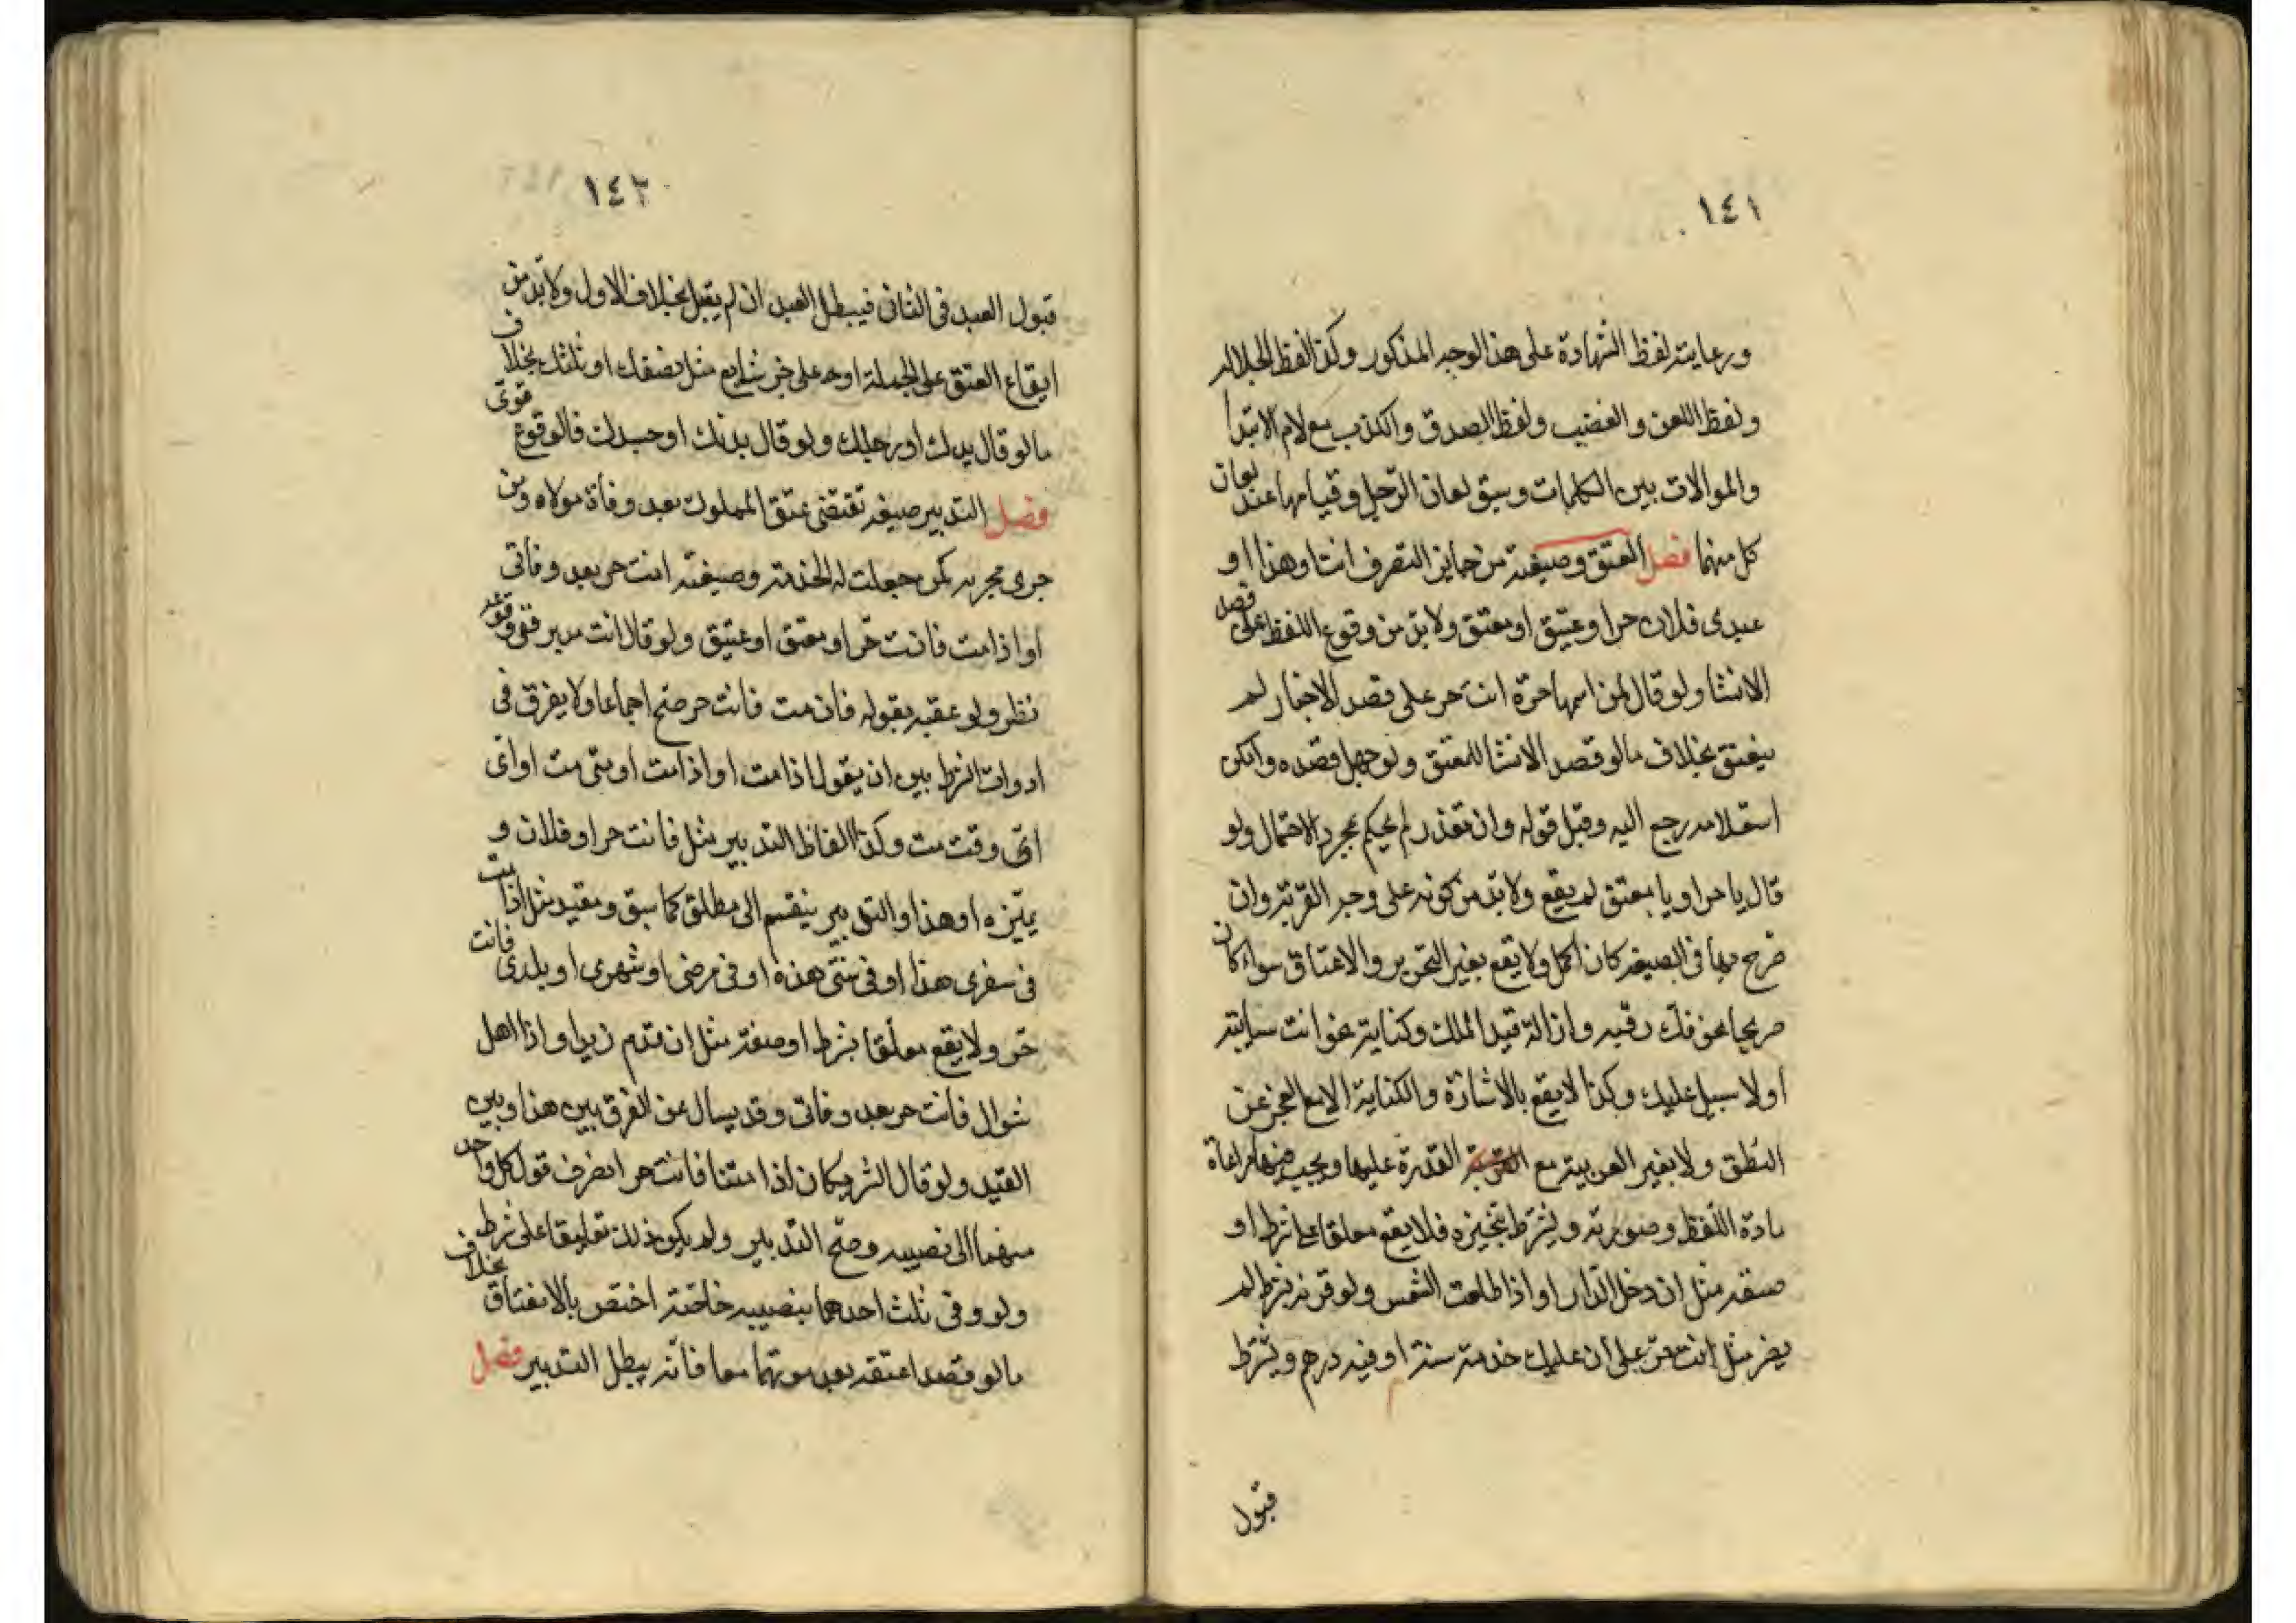 ١٤١
ورعايته لفظ الشهادة على هذا الوجه المذكور وكذا لفظ الجلاله
ولفظ اللعن والغضب ولفظ الصدق والكذب مع لام الابتدا
والموالات بين الكلمات وسبق لعان الرجل وقيامها عند لعان
كل منهما فصل العتق وصيغته من جايز التصرف انت او هذا او
عبدى فلان حر او عتيق او معتق ولا بد من وقوع اللفظ على قصد
الانشا ولو قال لمن اسمها حرة انت حر على قصد الاخبار لم
ينعتق بخلاف ما لو قصد الانشا للعتق ولو جهل قصده وامكن
استعلامه رجع اليه وقبل قوله وان تعذر لم يحكم بمجرد الاحتمال ولو
قال يا حر او يا معتق لم يقع ولا بد من كونه على وجه القربة وان
صرح بها فى الصيغه كان اكمل ولا يقع بغير التحرير والاعتاق سواء كان
صريحا نحو فك رقبه وازالة قيد الملك وكناية نحو انت سايبه
او لا سبيل عليك وكذا لا يقع بالاشارة والكناية الا مع العجز عن
النطق ولا بغير العربيه مع القدرة عليها ويجب مراعاة
مادة اللفظ وصورته ويشترط تنجيزه فلا يقع معلقا على شرط او
صفه مثل ان دخل الدار او اذا طلعت الشمس ولو قرنه بشرط لم
يضر مثل انت حر على ان عليك خدمة سنة او درهم ويشترط
قبول
١٤٢
قبول العبد فى الثانى فيبطل العبد ان لم يقبل بخلاف الاول ولا بد من
ايقاع العتق على الجملة او على جزء شايع مثل نصفك او ثلثك بخلاف
ما لو قال يدك او رجلك ولو قال بدنك او جسدك فالوقوع قوى
فصل التدبير صيغه تقتضى عتق المملوك بعد وفاة مولاه ومن
جرى مجريه كمن جعلت له الخدمة وصيغته انت حر بعد وفاتى
او اذا مت فانت حر او معتق او عتيق ولو قال انت مدبر ففى وقوعه
نظر ولو عقبه بقوله فان مت فانت حر صح اجماعا ولا يفرق فى
ادوات الشرط بين ان يقول اذا مت او اذا مت او متى مت او اى
اى وقت مت وكذا الفاظ التدبير مثل فانت حر او فلان و
يميزه او هذا والتدبير ينقسم الى مطلق كما سبق ومقيد مثل اذا مت
فى سفرى هذا او فى سنتى هذه او فى مرضى او شهرى او بلدى فانت
حر ولا يقع معلقا بشرط او صفة مثل ان قدم زيد او اذا اهل
شوال فانت حر بعد وفاتى وقد يسال عن الفرق بين هذا وبين
القيد ولو قال الشريكان اذا متنا فانت حر انصرف قول كل واحد
منهما الى نصيبه وصح التدبير ولم يكن ذلك تعليقا على شرط
ولو وفى ثلث احدهما بنصيبه خاصة اختص بالانعتاق بخلاف
ما لو قصدا عتقه بعد موتهما معا فانه يبطل التدبير فصل